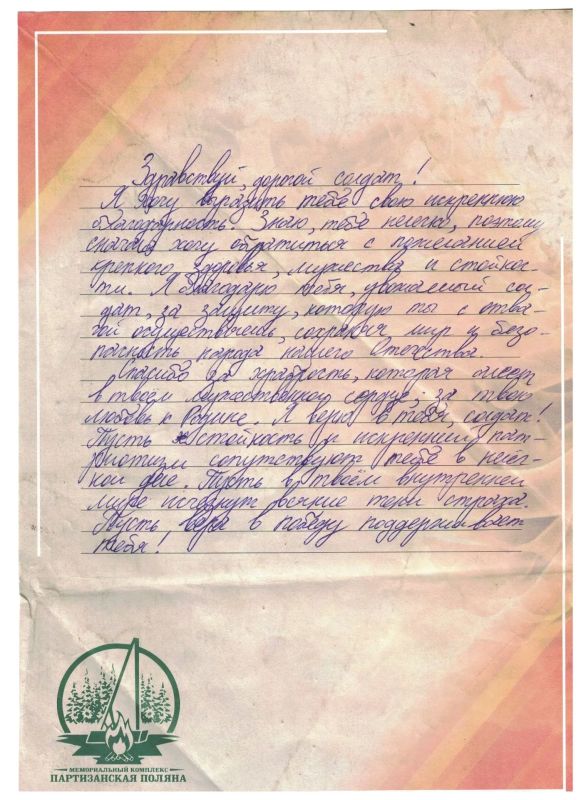 Здравствуй, дорогой солдат!
Я хочу выразить тебе свою искреннюю
благодарность. Знаю, тебе нелегко, поэтому
сначала хочу обратиться с пожеланием
крепкого здоровья, мужества и стойкос-
ти. Я благодарю тебя, уважаемый сол-
дат, за защиту, которую ты с отва-
гой осуществляешь, сохраняя мир и безо-
пасность народа нашего Отечества.
Спасибо за храбрость, которая
в твоем мужественном сердце, за твою
любовь к Родине. Я верю в тебя, солдат!
Пусть стойкость и искренний пат-
риотизм сопутствуют тебе в нелёг-
ком деле. Пусть в твоём внутреннем
мире исчезнут всякие тени страха.
Пусть вера в победу поддерживает
тебя!
МЕМОРИАЛЬНЫЙ КОМПЛЕКС
ПАРТИЗАНСКАЯ ПОЛЯНА